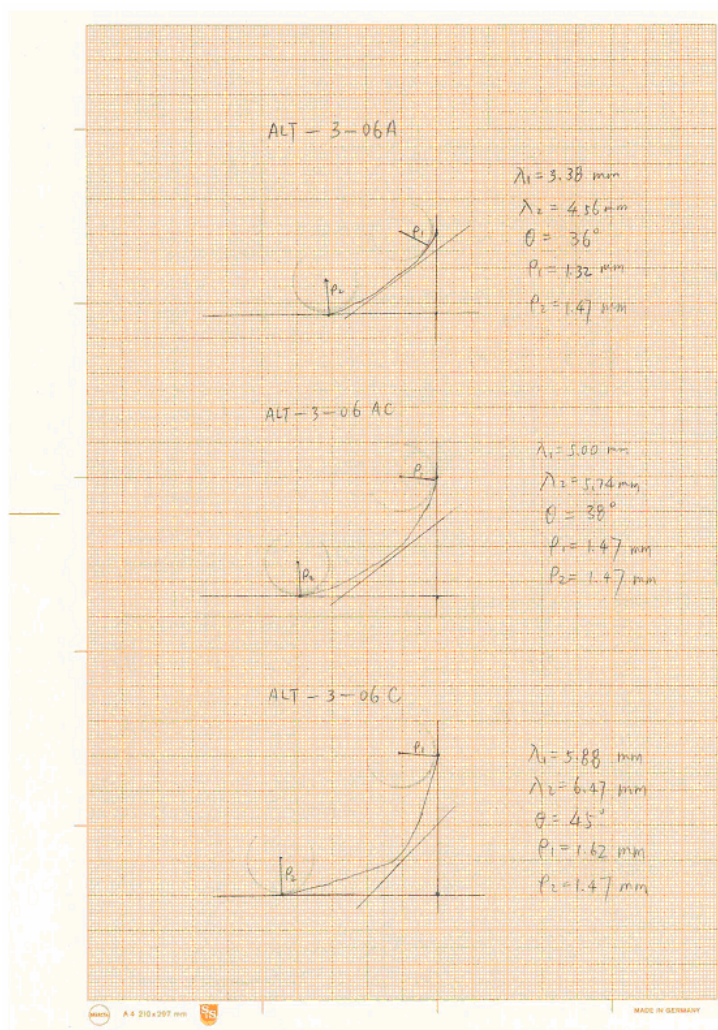 ALT - 3 - 06A
λ1 = 3.38 mm
λ2 = 4.56 mm
θ = 36°
ρ1 = 1.32 mm
ρ2 = 1.47 mm
ρ1
ρ2
ALT - 3 - 06 AC
λ1 = 5.00 mm
λ2 = 5.74 mm
θ = 38°
ρ1 = 1.47 mm
ρ2 = 1.47 mm
ρ1
ρ2
ALT - 3 - 06 C
λ1 = 5.88 mm
λ2 = 6.47 mm
θ = 45°
ρ1 = 1.62 mm
ρ2 = 1.47 mm
ρ1
ρ2
A4 210x297 mm
MADE IN GERMANY